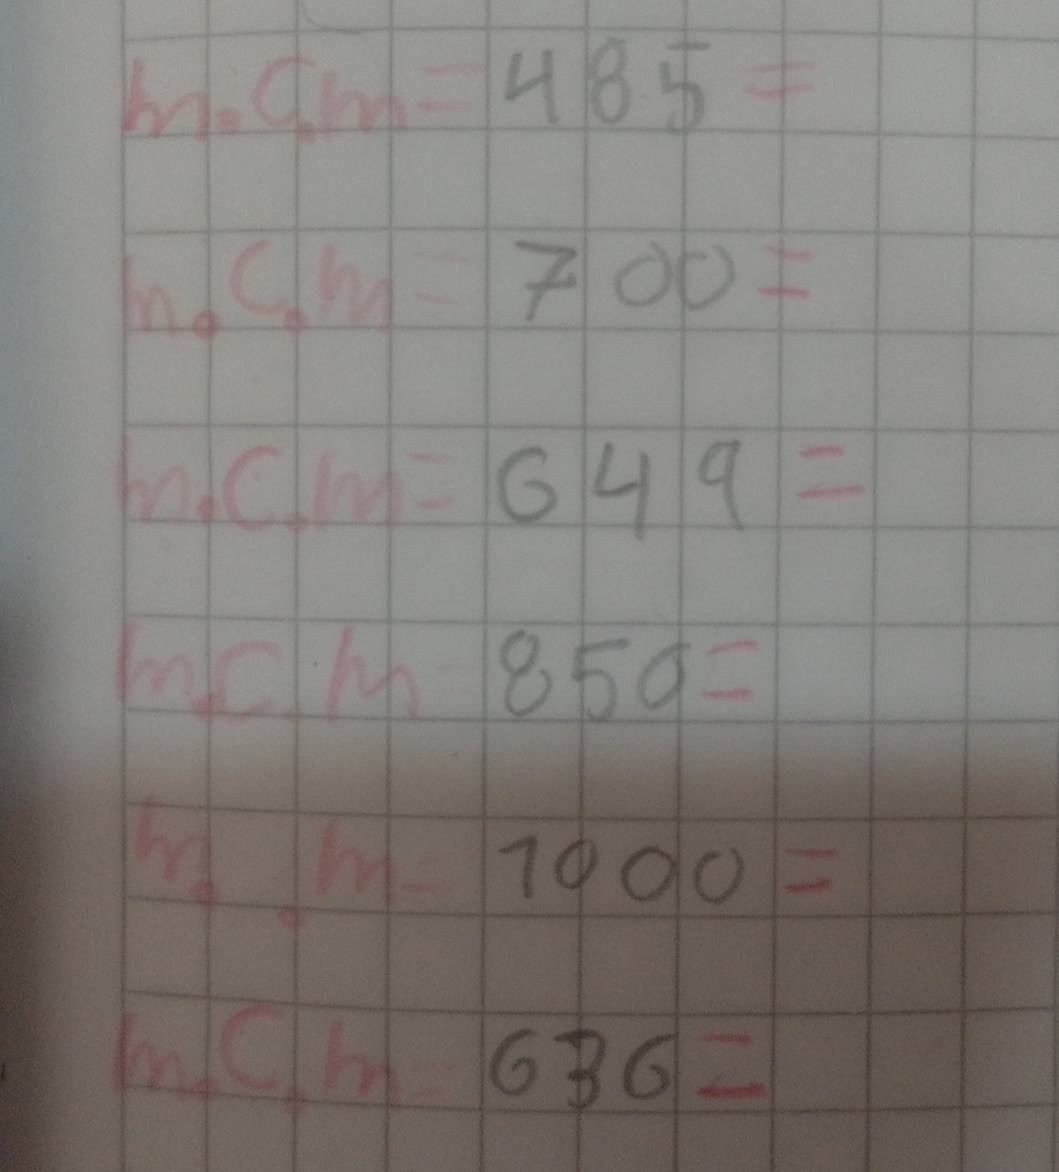 m.C.m=485=
m.C.m=700=
m.C.m=649=
m.C.m 850=
m. .m=1000=
m.C.m=636=